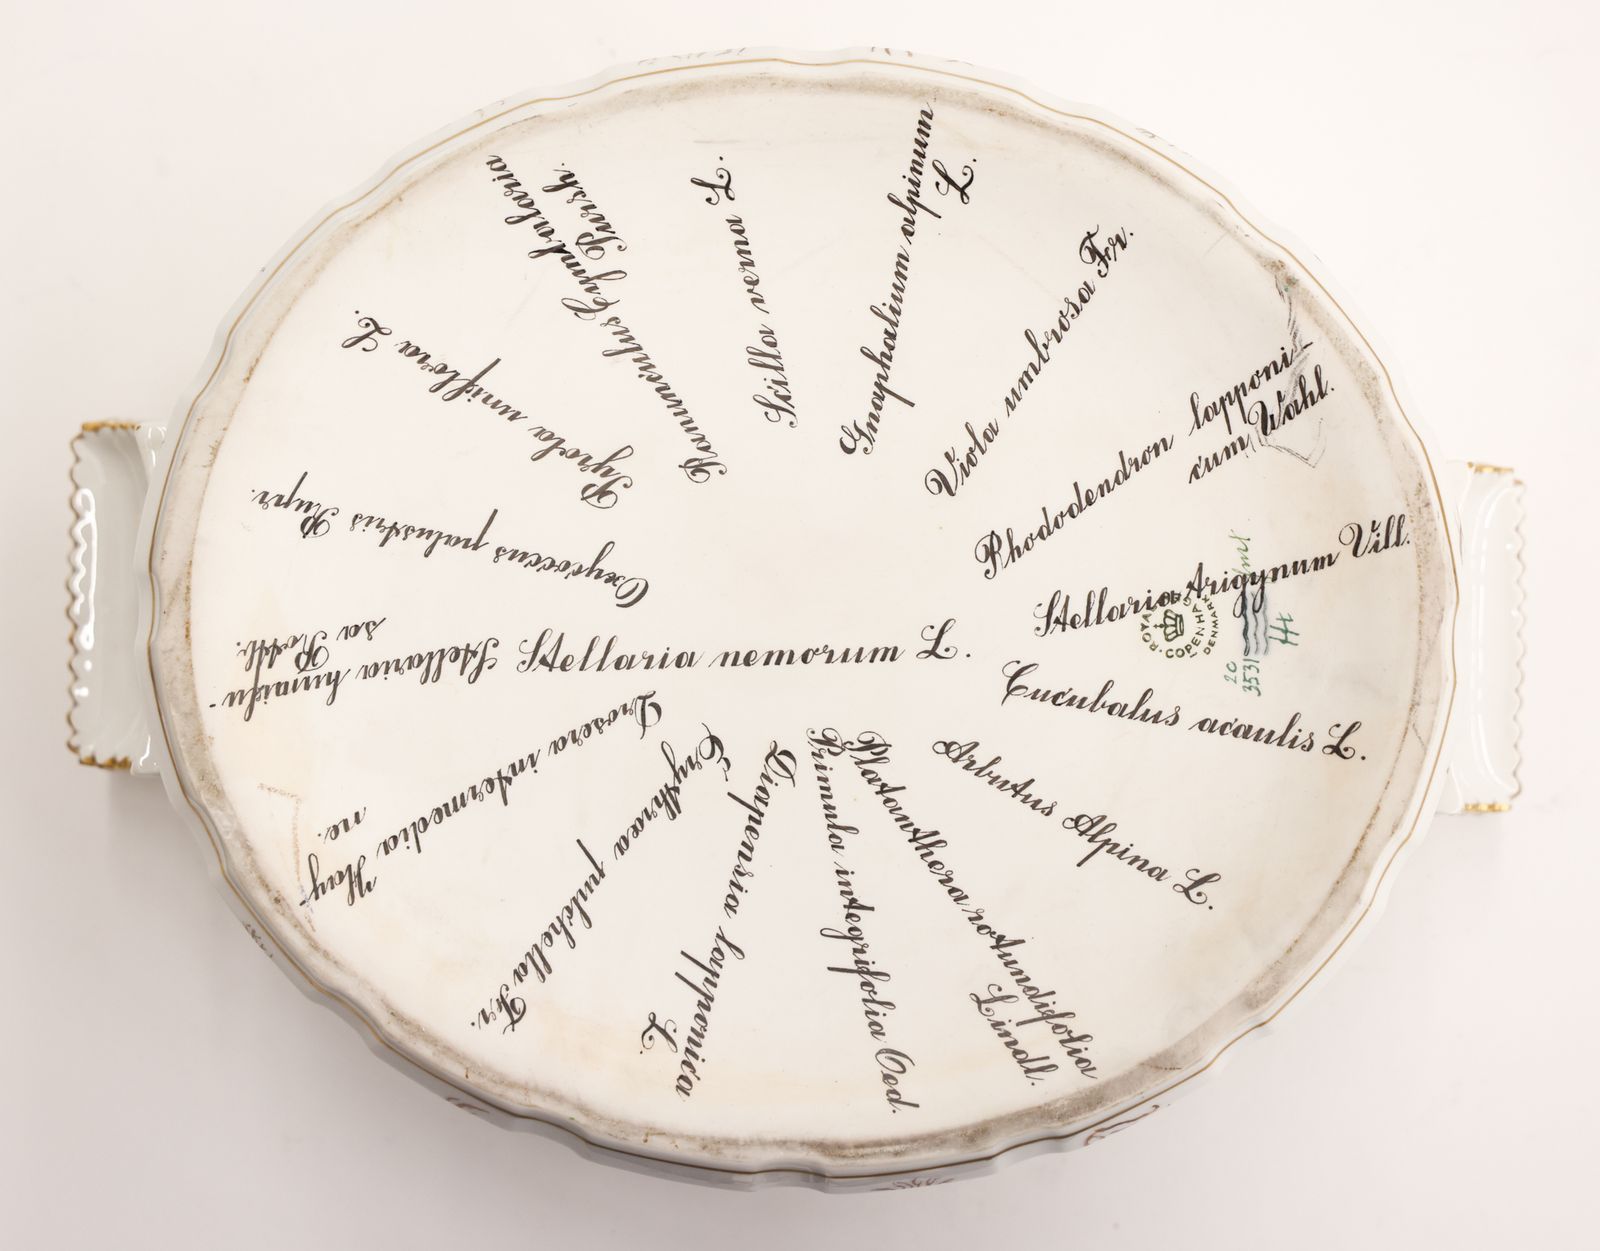 Stellaria nemorum L.
Scilla verna L.
Gnaphalium alpinum
L.
Viola umbrosa Fr.
Rhododendron lapponi-
cum Wahl.
Stellaria trigynum Vill.
Cucubalus acaulis L.
Arbutus Alpina L.
Platanthera rotundifolia
Lindl.
Primula integrifolia Oed.
Diapensia lapponica
L.
Erythræa pulchella Fr.
Drosera intermedia Hay-
ne.
Stellaria humifu-
sa Rottb.
Oxycoccus palustris
Pyrola uniflora L.
Ranunculus Cymbalaria
Pursh.
ROYAL
COPENHAGEN
DENMARK
20
3531